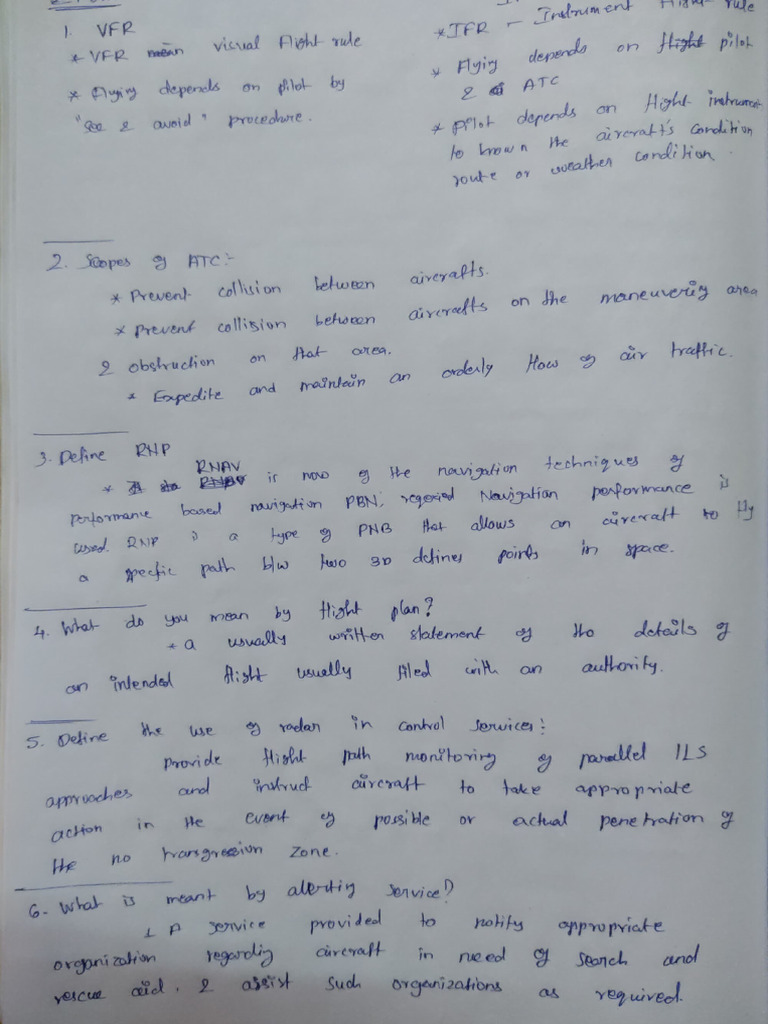 1. VFR
* VFR mean visual flight rule
* Flying depends on pilot by
"see & avoid" procedure.
* IFR - Instrument flight rule
* Flyig depends on flight pilot
& ATC
* Pilot depends on flight instrument
to known the aircraft's condition
route or weather condition.
2. Scopes of ATC:-
* Prevent collision between aircrafts.
* Prevent collision between aircrafts on the maneuverig area
& obstruction on that area.
* Expedite and maintain an orderly flow of air traffic.
3. Define RNP
RNAV
* is now of the navigation techniques of
performance based navigation PBN; reqeried Navigation performance is
used. RNP is a type of PNB that allows an aircraft to fly
a specfic path b/w two 3D defines points in space.
4. What do you mean by flight plan?
* a usually written statement of the details of
an intended flight usually filed with an authority.
5. Define the use of radar in control services:
Provide flight path monitoring of parallel ILS
approaches and instruct aircraft to take appropriate
action in the event of possible or actual penetration of
the no transgression zone.
6. What is meant by alertig service?
A service provided to notify appropriate
organization regardig aircraft in need of search and
rescue aid, & assist such organizations as required.